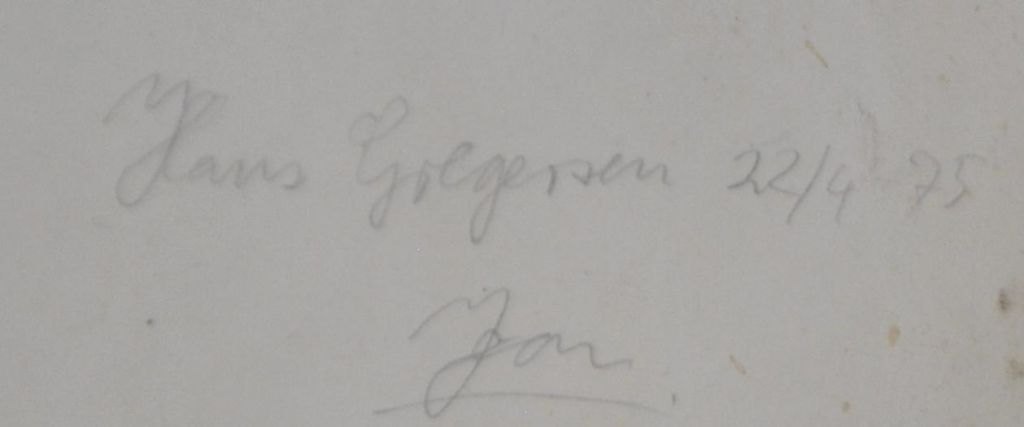 Hans Gregersen 22/4 75
Jan